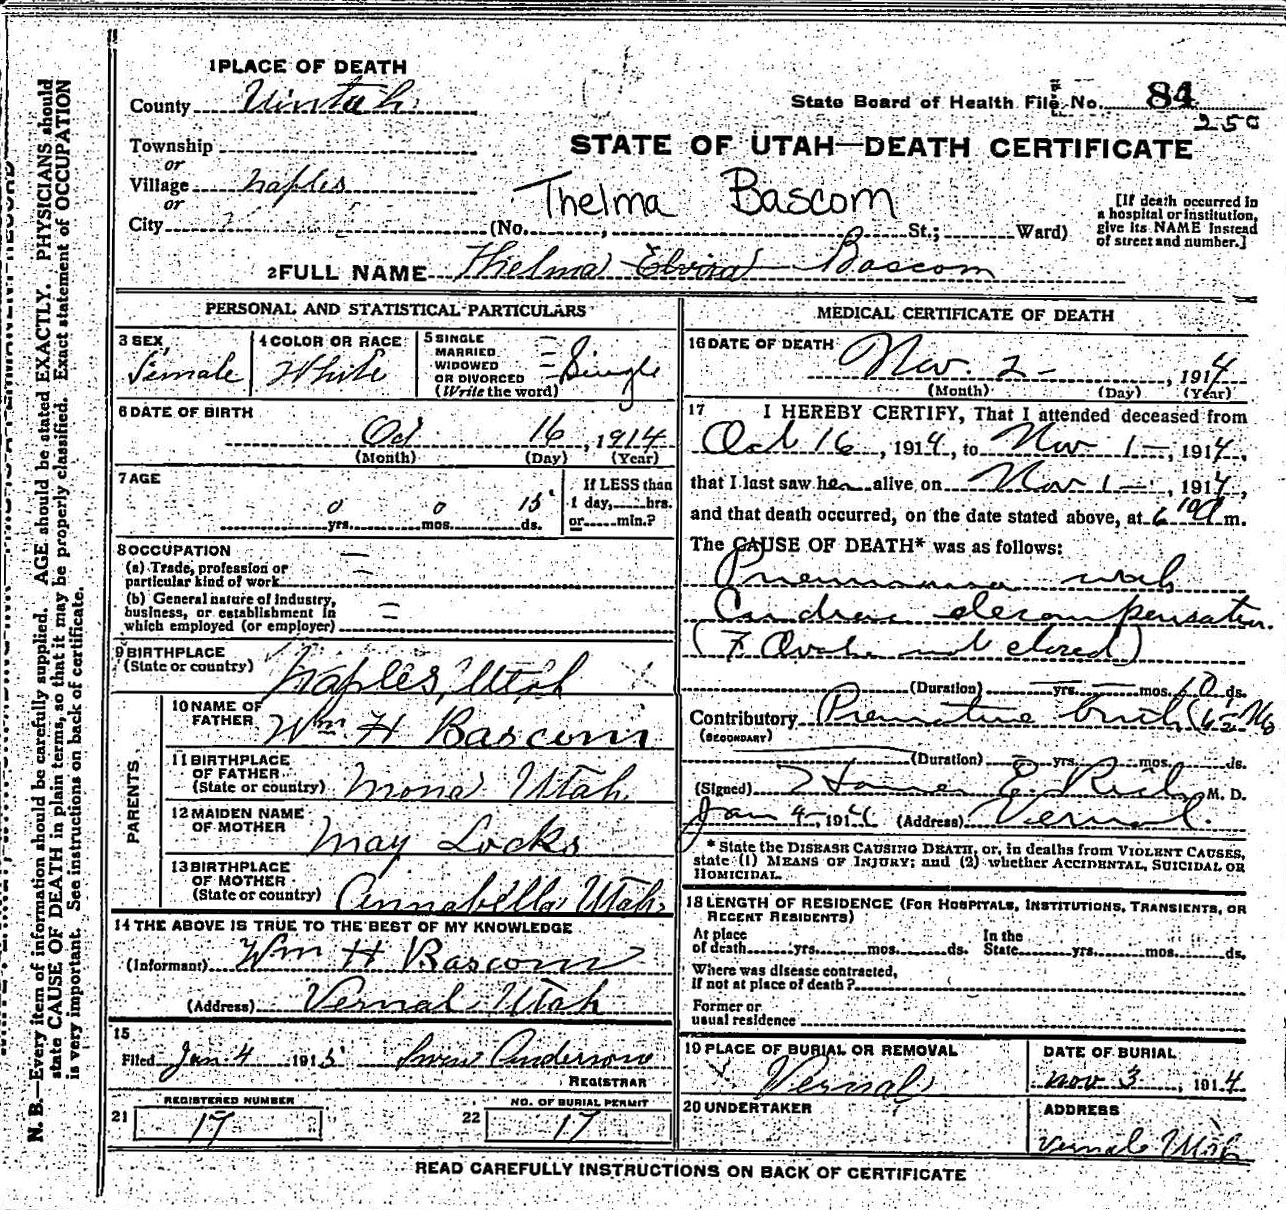 1 PLACE OF DEATH
County Uintah
State Board of Health File No. 84
250
STATE OF UTAH—DEATH CERTIFICATE
Township
or
Village Naples
or
City
Thelma Bascom
(No. , St.; Ward)
[If death occurred in
a hospital or institution,
give its NAME instead
of street and number.]
2 FULL NAME Thelma Elvira Bascom
PERSONAL AND STATISTICAL PARTICULARS
3 SEX Female
4 COLOR OR RACE White
5 SINGLE
MARRIED
WIDOWED
OR DIVORCED
(Write the word) Single
6 DATE OF BIRTH
Oct 16, 1914
(Month) (Day) (Year)
7 AGE
0 yrs. 0 mos. 15 ds.
If LESS than
1 day, hrs.
or min.?
8 OCCUPATION
(a) Trade, profession or
particular kind of work
(b) General nature of industry,
business, or establishment in
which employed (or employer)
9 BIRTHPLACE
(State or country) Naples, Utah
PARENTS
10 NAME OF
FATHER Wm H Bascom
11 BIRTHPLACE
OF FATHER
(State or country) Mona Utah
12 MAIDEN NAME
OF MOTHER May Locks
13 BIRTHPLACE
OF MOTHER
(State or country) Annabella Utah
14 THE ABOVE IS TRUE TO THE BEST OF MY KNOWLEDGE
(Informant) Wm H Bascom
(Address) Vernal Utah
15
Filed Jan 4 1915 Anderson
REGISTRAR
REGISTERED NUMBER
21 17
NO. OF BURIAL PERMIT
22 17
MEDICAL CERTIFICATE OF DEATH
16 DATE OF DEATH
Nov. 2 , 1914
(Month) (Day) (Year)
17 I HEREBY CERTIFY, That I attended deceased from
Oct 16, 1914, to Nov 1, 1914,
that I last saw her alive on Nov 1, 1914,
and that death occurred, on the date stated above, at 6 m.
The CAUSE OF DEATH* was as follows:
Pneumonia with
decompensation.
(F Ovale not closed)
(Duration) yrs. mos. 10 ds.
Contributory Premature birth
(SECONDARY)
(Duration) yrs. mos. ds.
(Signed) Homer E Rich M. D.
Jan 4, 191 (Address) Vernal.
* State the DISEASE CAUSING DEATH, or, in deaths from VIOLENT CAUSES,
state (1) MEANS OF INJURY; and (2) whether ACCIDENTAL, SUICIDAL OR
HOMICIDAL.
18 LENGTH OF RESIDENCE (FOR HOSPITALS, INSTITUTIONS, TRANSIENTS, OR
RECENT RESIDENTS)
At place
of death yrs. mos. ds.
In the
State yrs. mos. ds.
Where was disease contracted,
if not at place of death?
Former or
usual residence
19 PLACE OF BURIAL OR REMOVAL
Vernal
DATE OF BURIAL
Nov 3, 1914
20 UNDERTAKER
ADDRESS
Vernal Utah
READ CAREFULLY INSTRUCTIONS ON BACK OF CERTIFICATE
N. B.—Every item of information should be carefully supplied. AGE should be stated EXACTLY. PHYSICIANS should
state CAUSE OF DEATH in plain terms, so that it may be properly classified. Exact statement of OCCUPATION
is very important. See instructions on back of certificate.